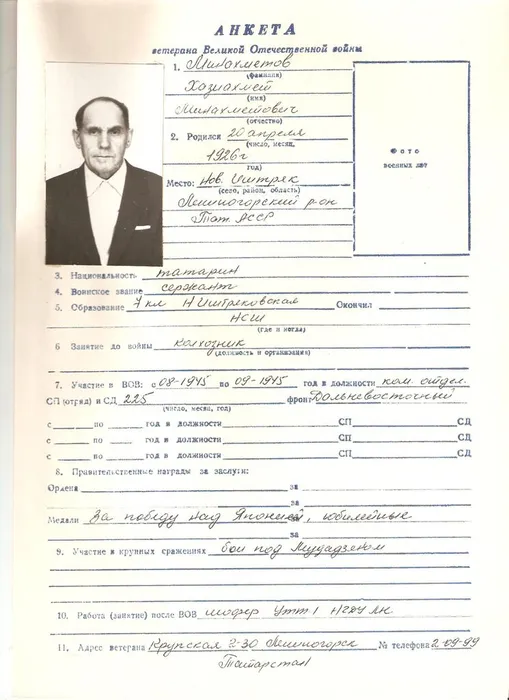 АНКЕТА
ветерана Великой Отечественной войны
1. Минахметов
(фамилия)
Хазиахмет
(имя)
Минахметович
(отчество)
2. Родился 20 апреля
(число, месяц,
1926 г
год)
Место: Нов. Иштряк
(село, район, область)
Лениногорский р-он
Тат. АССР
Фото
военных лет
3. Национальность татарин
4. Воинское звание сержант
5. Образование 7 кл Н Иштряковская Окончил
НСШ
(где и когда)
6 Занятие до войны колхозник
(должность и организация)
7. Участие в ВОВ: с 08-1945 по 09-1945 год в должности ком. отдел.
СП (отряд) и СД 225 фронт Дальневосточный
(число, месяц, год)
с по год в должности СП СД
с по год в должности СП СД
с по год в должности СП СД
8. Правительственные награды за заслуги:
Ордена за
за
Медали За победу над Японией, юбилейные
за
9. Участие в крупных сражениях бои под Мудадзяном
10. Работа (занятие) после ВОВ шофер УТТ-1 НГДУ ЛН
11. Адрес ветерана Крупская 2-30 Лениногорск № телефона 2-09-99
Татарстан